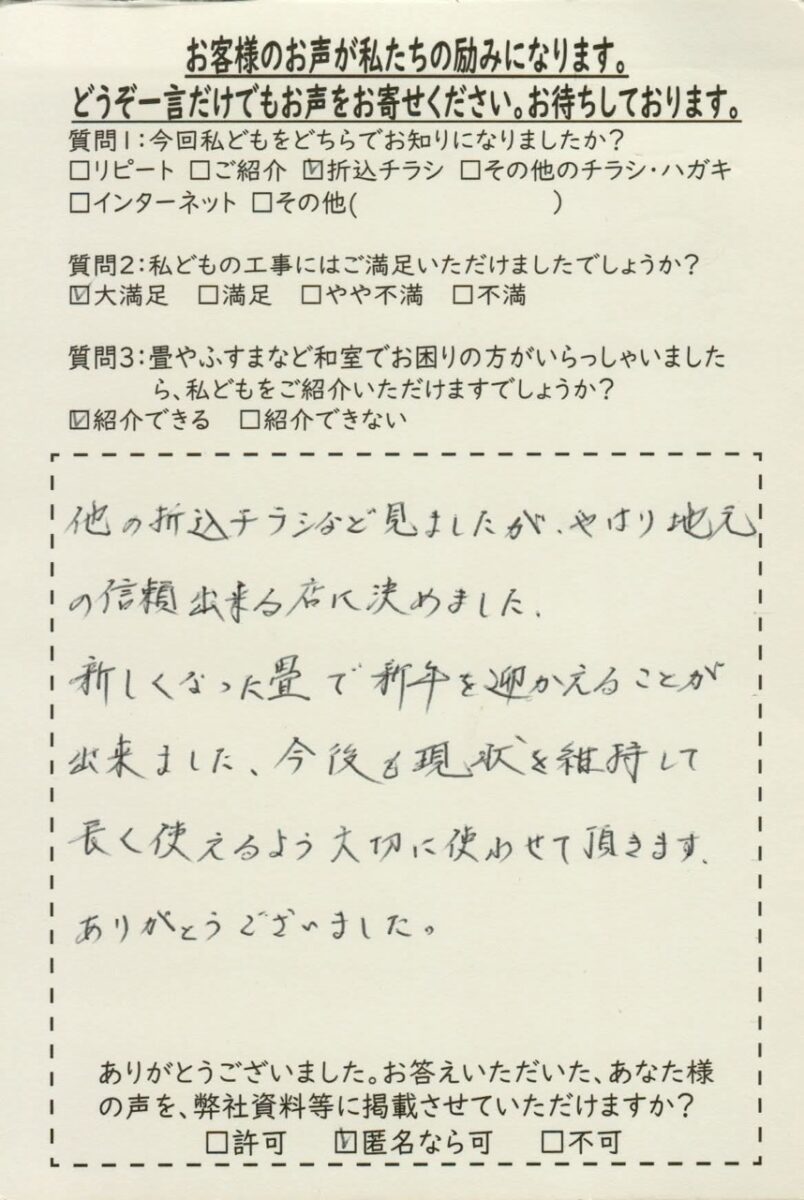 お客様のお声が私たちの励みになります。
どうぞ一言だけでもお声をお寄せください。お待ちしております。
質問1:今回私どもをどちらでお知りになりましたか?
□リピート □ご紹介 ☑折込チラシ □その他のチラシ・ハガキ
□インターネット □その他( )
質問2:私どもの工事にはご満足いただけましたでしょうか?
☑大満足 □満足 □やや不満 □不満
質問3:畳やふすまなど和室でお困りの方がいらっしゃいました
ら、私どもをご紹介いただけますでしょうか?
☑紹介できる □紹介できない
他の折込チラシなど見ましたが、やはり地元
の信頼出来る店に決めました、
新しくなった畳で新年を迎かえることが
出来ました、今後も現状を維持して
長く使えるよう大切に使わせて頂きます、
ありがとうございました。
ありがとうございました。お答えいただいた、あなた様
の声を、弊社資料等に掲載させていただけますか?
□許可 ☑匿名なら可 □不可